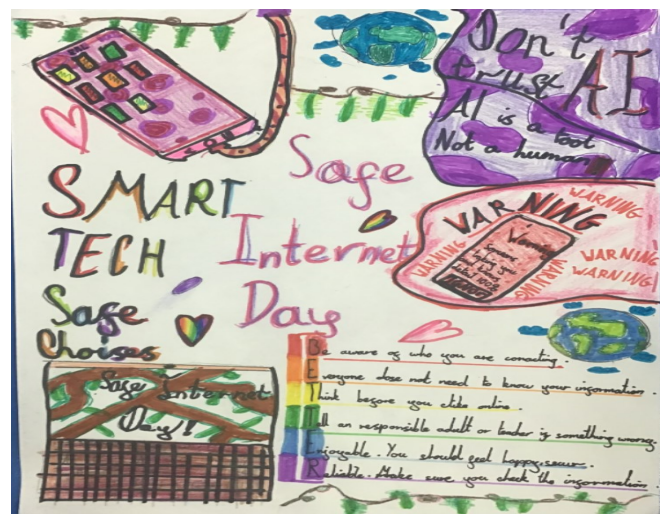 Don't
trust AI
AI is a tool
Not a human
Safe
Internet
Day
SMART
TECH
Safe
Choises
WARNING
WARNING
WARNING
WARNING
WARNING
WARNING
Warning
Safe Internet
Day!
Be aware of who you are conacting.
Everyone dose not need to know your information.
Think before you clike online.
Tell an responsible adult or leader if something wrong.
Enjoyable. You should feel happy, secure.
Reliable. Make sure you check the information.